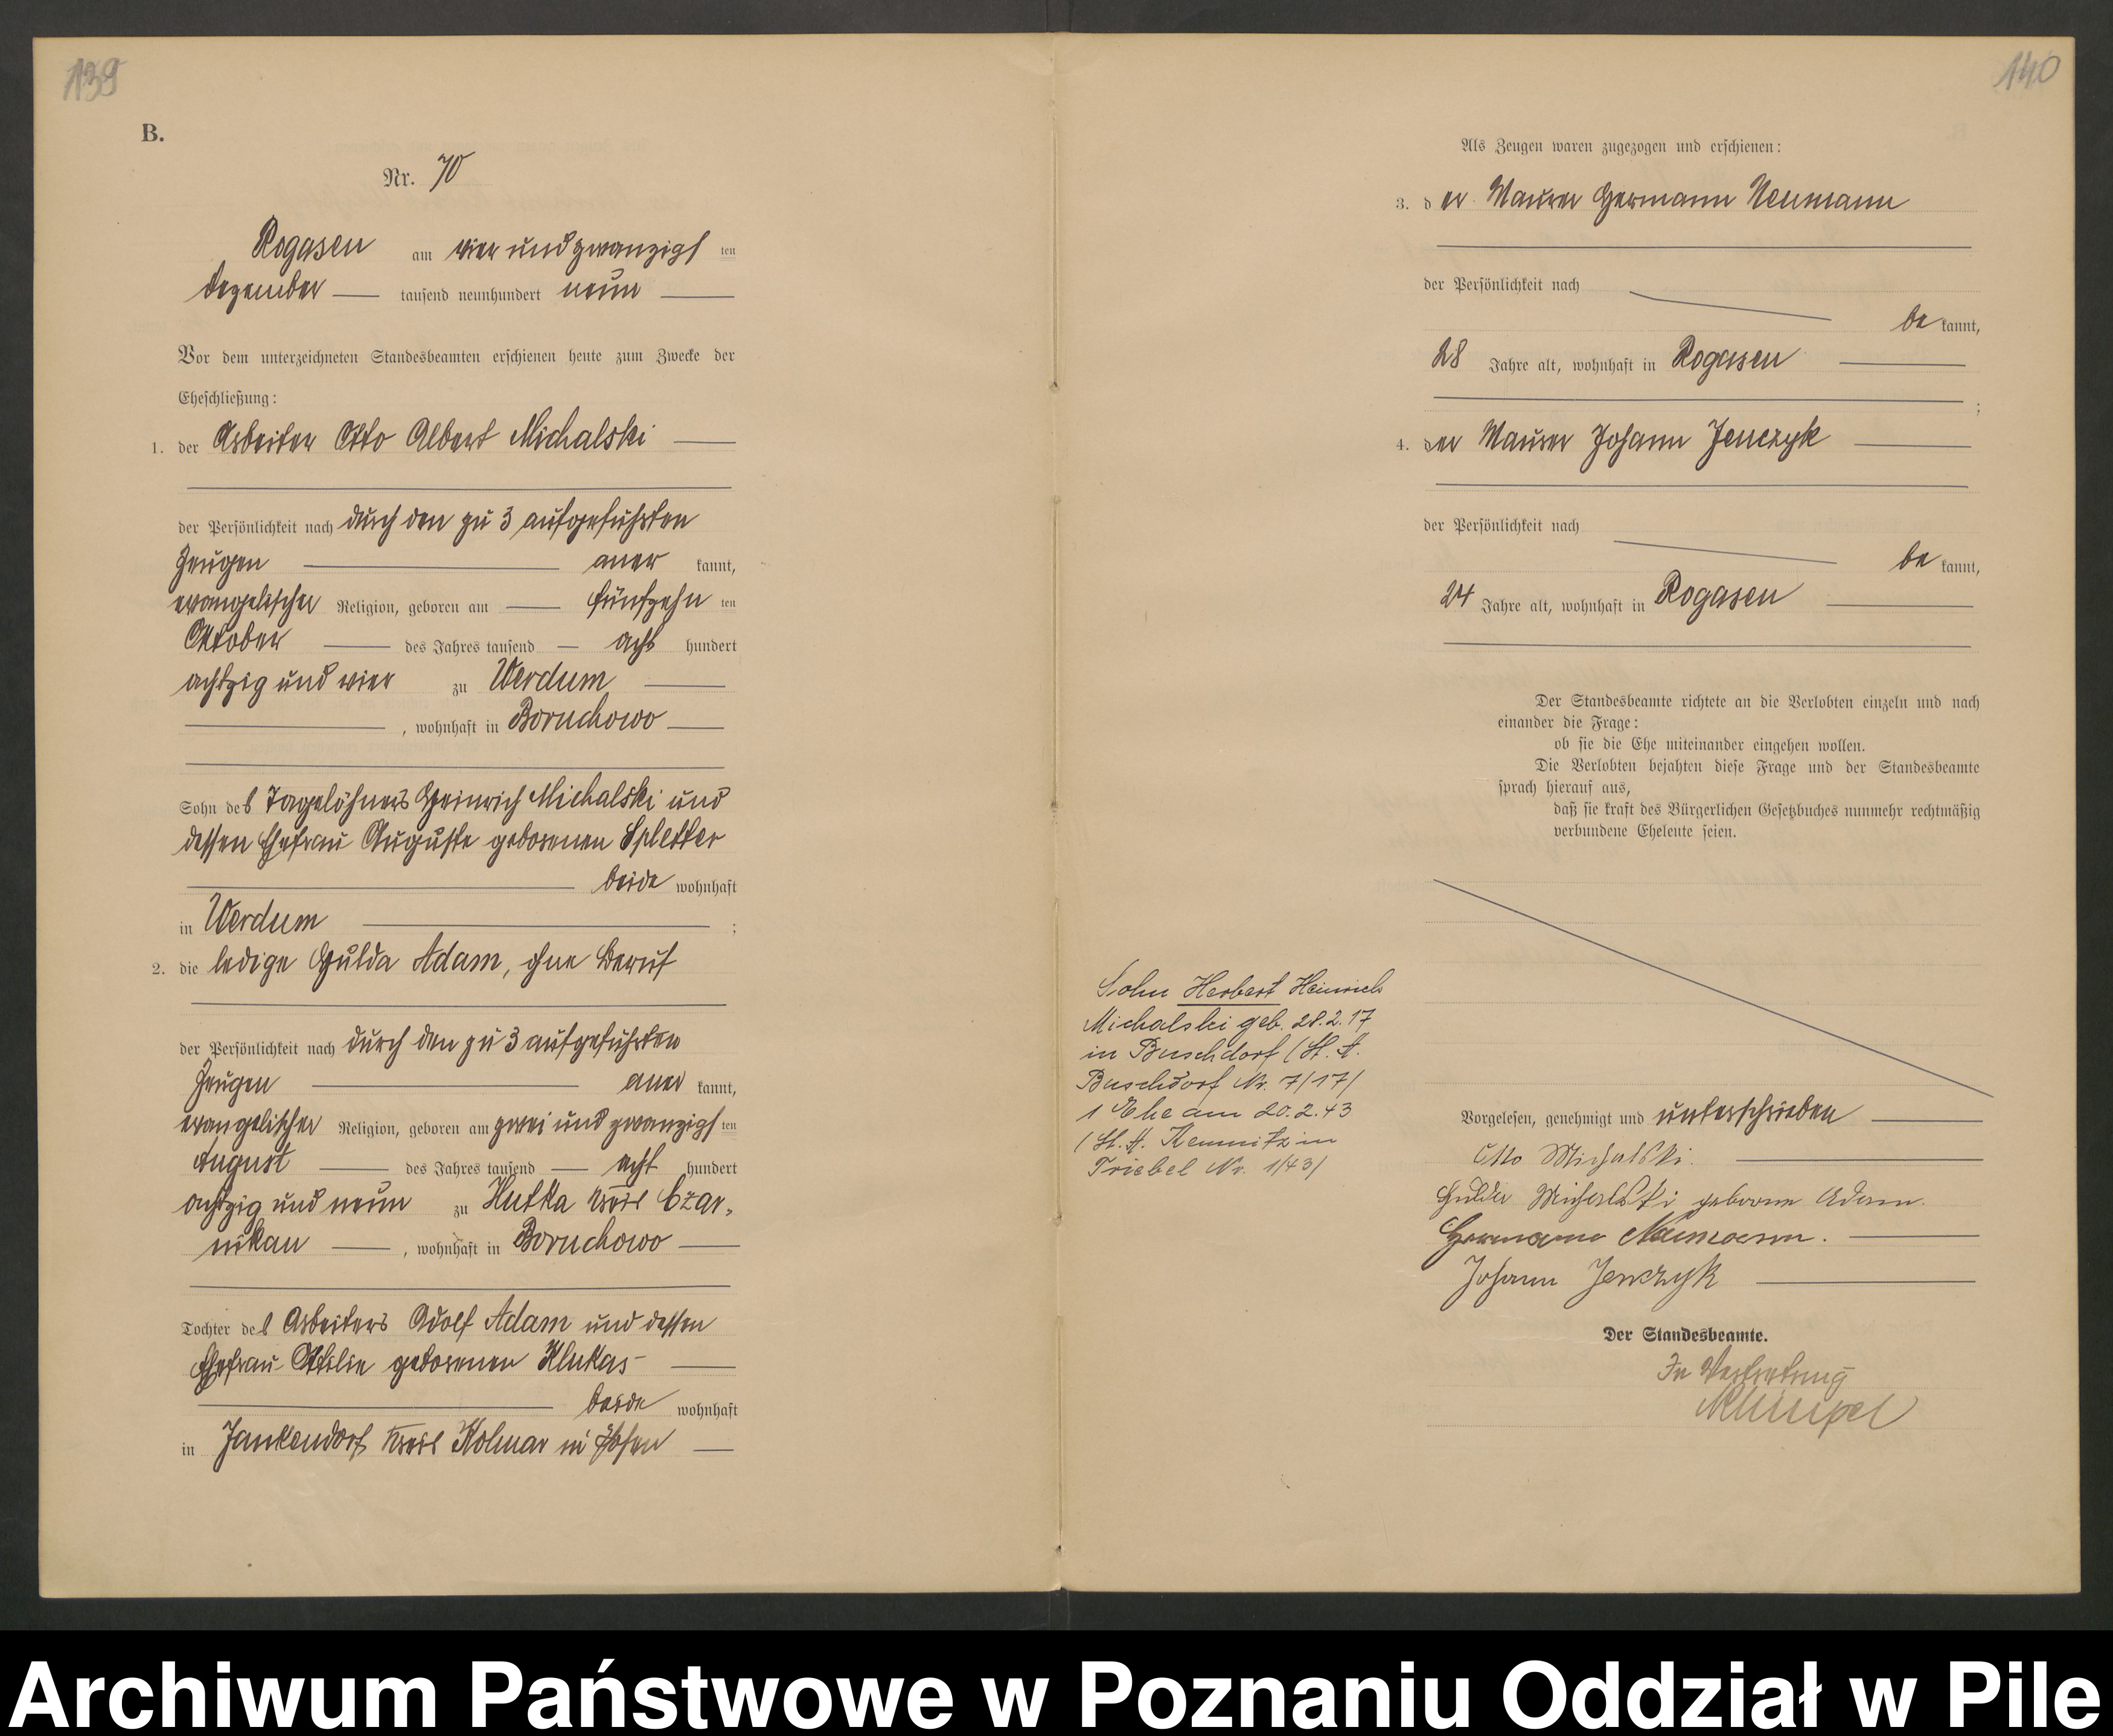 139
B.
Nr. 70
Rogasen am vier und zwanzigsten
Dezember tausend neunhundert neun
Vor dem unterzeichneten Standesbeamten erschienen heute zum Zwecke der
Eheschließung:
1. der Arbeiter Otto Albert Michalski
der Persönlichkeit nach durch den zu 3 aufgeführten
Zeugen anerkannt,
evangelischer Religion, geboren am fünfzehnten
Oktober des Jahres tausend acht hundert
achtzig und vier zu Werdum
, wohnhaft in Boruchowo
Sohn des Tagelöhners Heinrich Michalski und
dessen Ehefrau Auguste geborenen Spletter
beide wohnhaft
in Werdum ;
2. die ledige Hulda Adam, ohne Beruf
der Persönlichkeit nach durch den zu 3 aufgeführten
Zeugen anerkannt,
evangelischer Religion, geboren am zwei und zwanzigsten
August des Jahres tausend acht hundert
achtzig und neun zu Hutka Kreis Czar-
nikau , wohnhaft in Boruchowo
Tochter des Arbeiters Adolf Adam und dessen
Ehefrau Ottilie geborenen Klukas
beide wohnhaft
in Jankendorf Kreis Kolmar in Posen
140
Als Zeugen waren zugezogen und erschienen:
3. der Maurer Hermann Neumann
der Persönlichkeit nach
bekannt,
28 Jahre alt, wohnhaft in Rogasen
;
4. der Maurer Johann Jenczyk
der Persönlichkeit nach
bekannt,
24 Jahre alt, wohnhaft in Rogasen
Der Standesbeamte richtete an die Verlobten einzeln und nach
einander die Frage:
ob sie die Ehe miteinander eingehen wollen.
Die Verlobten bejahten diese Frage und der Standesbeamte
sprach hierauf aus,
daß sie kraft des Bürgerlichen Gesetzbuches nunmehr rechtmäßig
verbundene Eheleute seien.
Sohn Herbert Heinrich
Michalski geb. 28.2.17
in Buschdorf (St. A.
Buschdorf Nr. 7/17/
1 Ehe am 20.2.43
(St. A. Kemnitz in
Triebel Nr. 1/43/
Vorgelesen, genehmigt und unterschrieben
Otto Michalski.
Hulda Michalski geborene Adam.
Hermann Neumann.
Johann Jenczyk
Der Standesbeamte.
In Vertretung
Archiwum Państwowe w Poznaniu Oddział w Pile